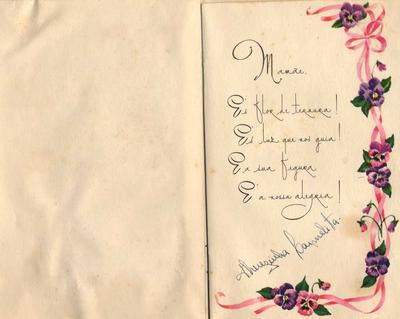 Mamãe,
És flor de ternura !
És luz que nos guia !
E a sua figura
E'a nossa alegria !
Therezinha Carmelita.